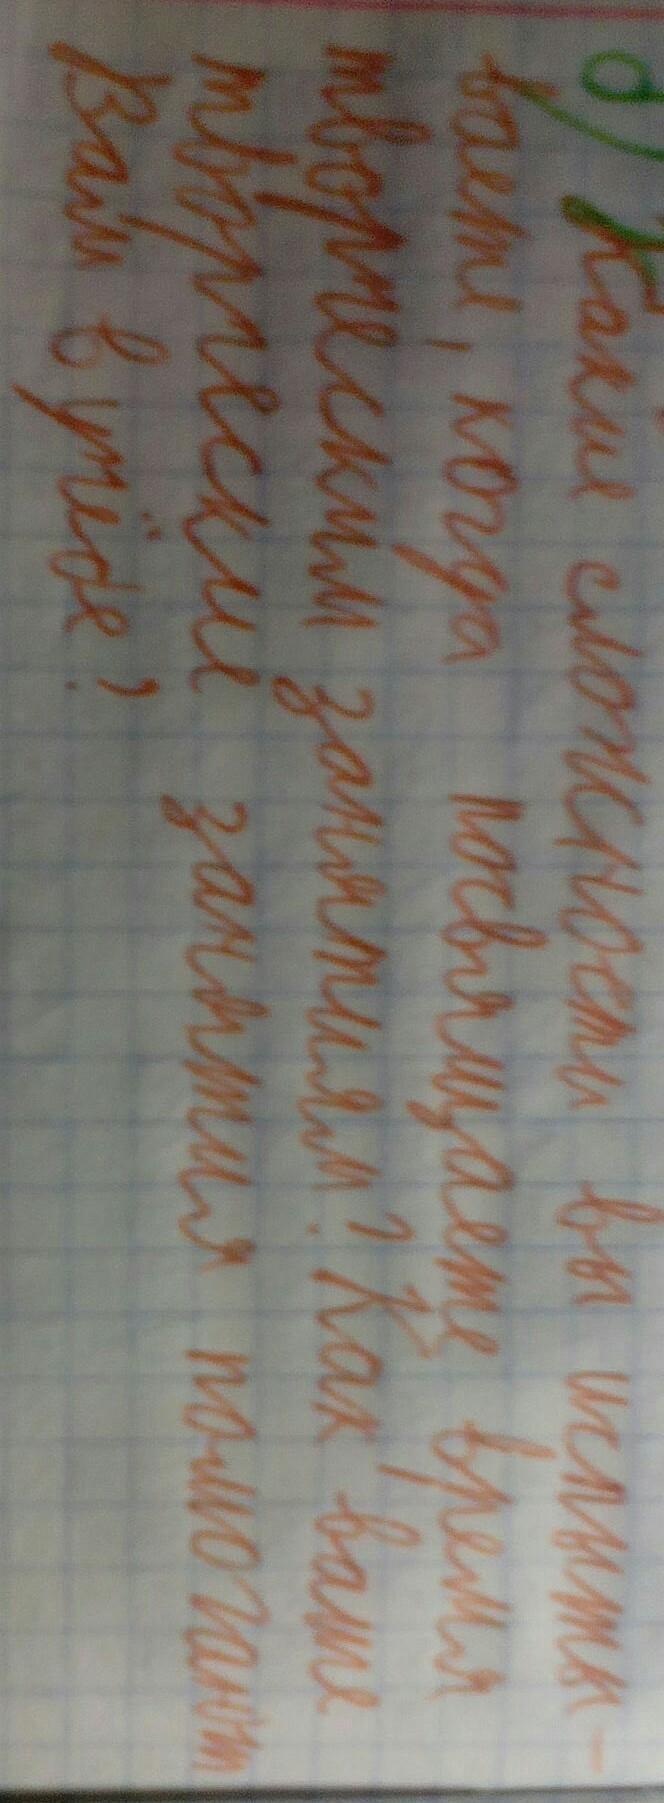 б) Какие сложности вы испыты-
ваете, когда посвящаете время
творческим занятиям? Как ваше
творческие занятия помогают
Вам в учёбе?